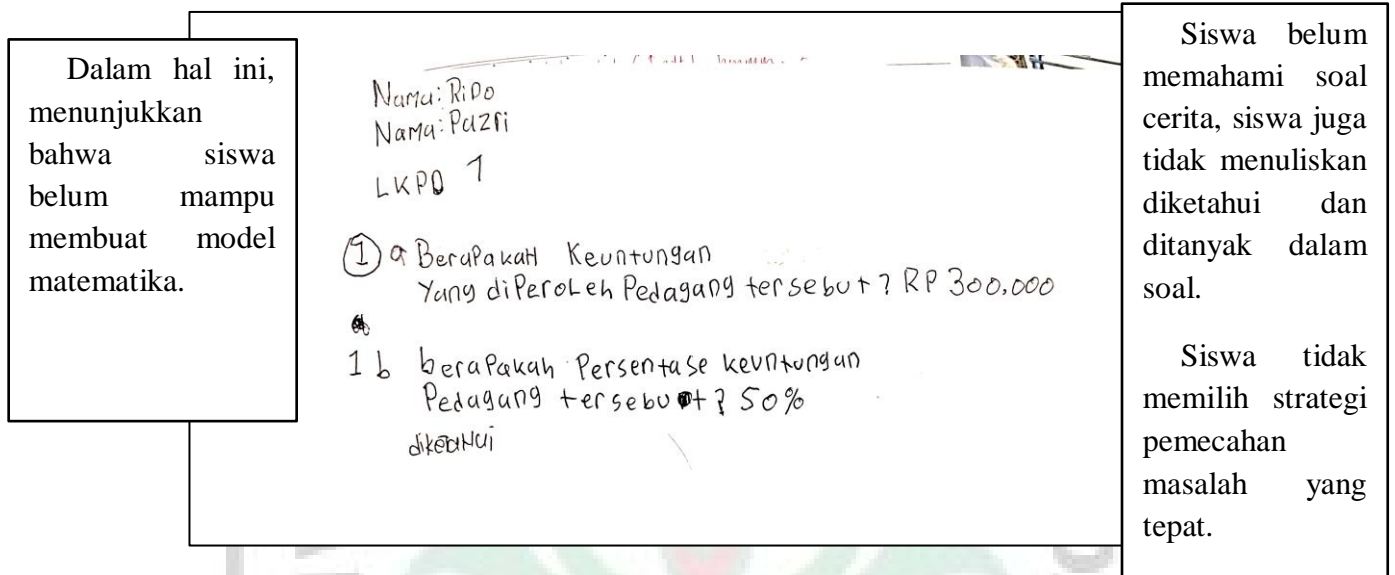 Dalam hal ini,
menunjukkan
bahwa siswa
belum mampu
membuat model
matematika.
Nama: RiDo
Nama: Pazri
LKPD 1
1 a BeraPakaH Keuntungan
Yang diPeroLeh Pedagang tersebut? RP 300.000
1 b beraPakah Persentase keuntungan
Pedagang tersebut? 50%
Siswa belum
memahami soal
cerita, siswa juga
tidak menuliskan
diketahui dan
ditanyak dalam
soal.
Siswa tidak
memilih strategi
pemecahan
masalah yang
tepat.